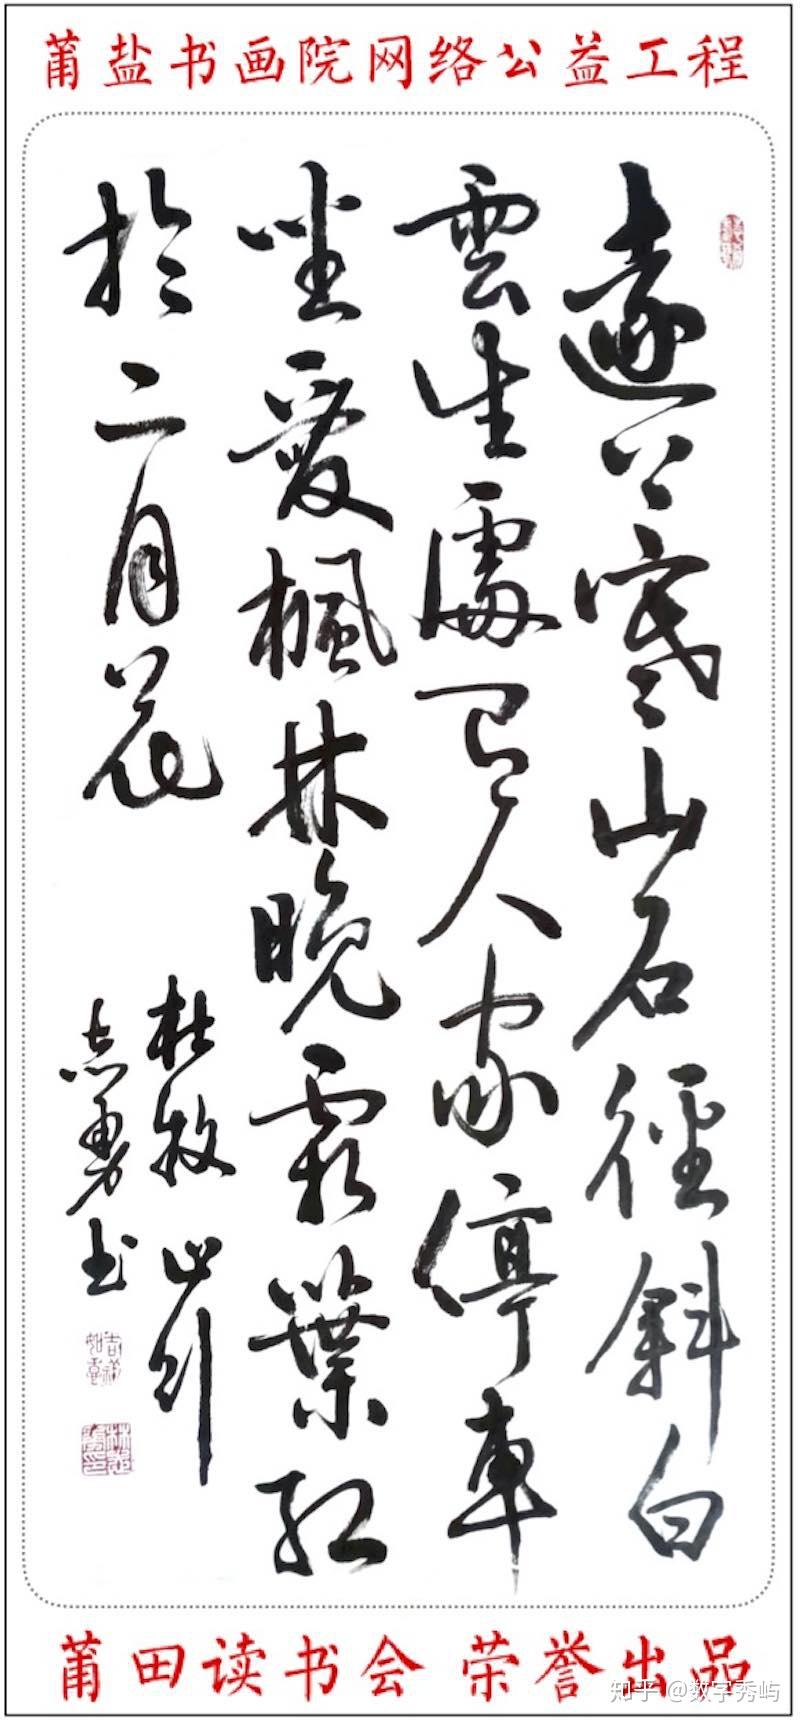 莆盐书画院网络公益工程
遠上寒山石徑斜白
雲生處有人家停車
坐愛楓林晚霜葉紅
於二月花
杜牧山行
志勇书
吉祥如意
莆田读书会 荣誉出品
知乎 @数字秀屿